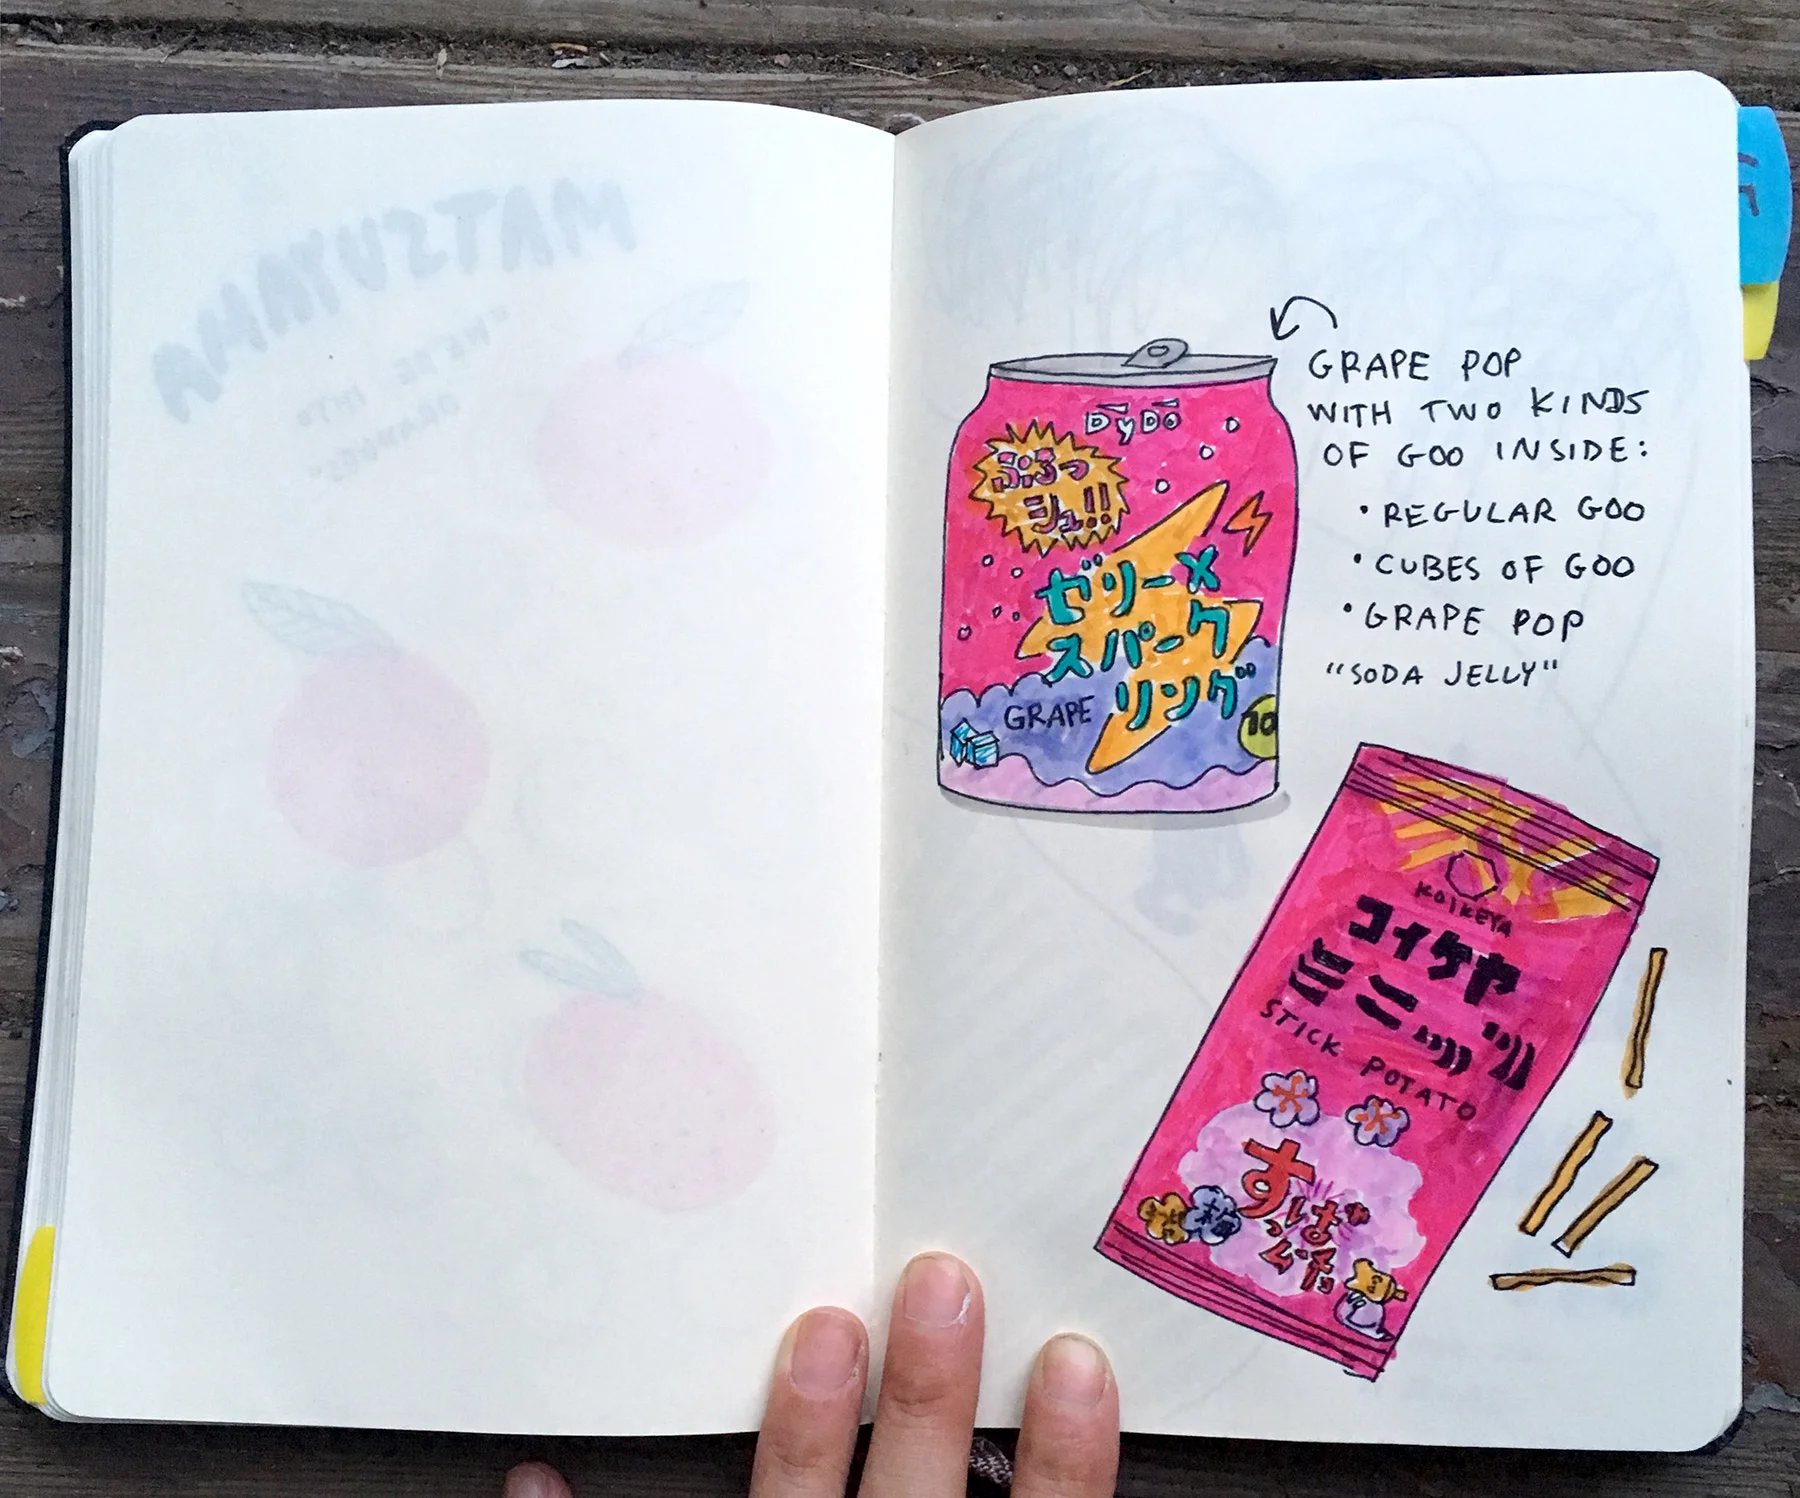 MATSUYAMA
"WE'RE INTO
ORANGES"
GRAPE POP
WITH TWO KINDS
OF GOO INSIDE:
• REGULAR GOO
• CUBES OF GOO
• GRAPE POP
"SODA JELLY"
DyDo
ぷるっ
シュ!!
ゼリー×
スパーク
リング
GRAPE
10
KOIKEYA
コイケヤ
ミニッツ
STICK POTATO
すっぱ
ムーチョ
梅